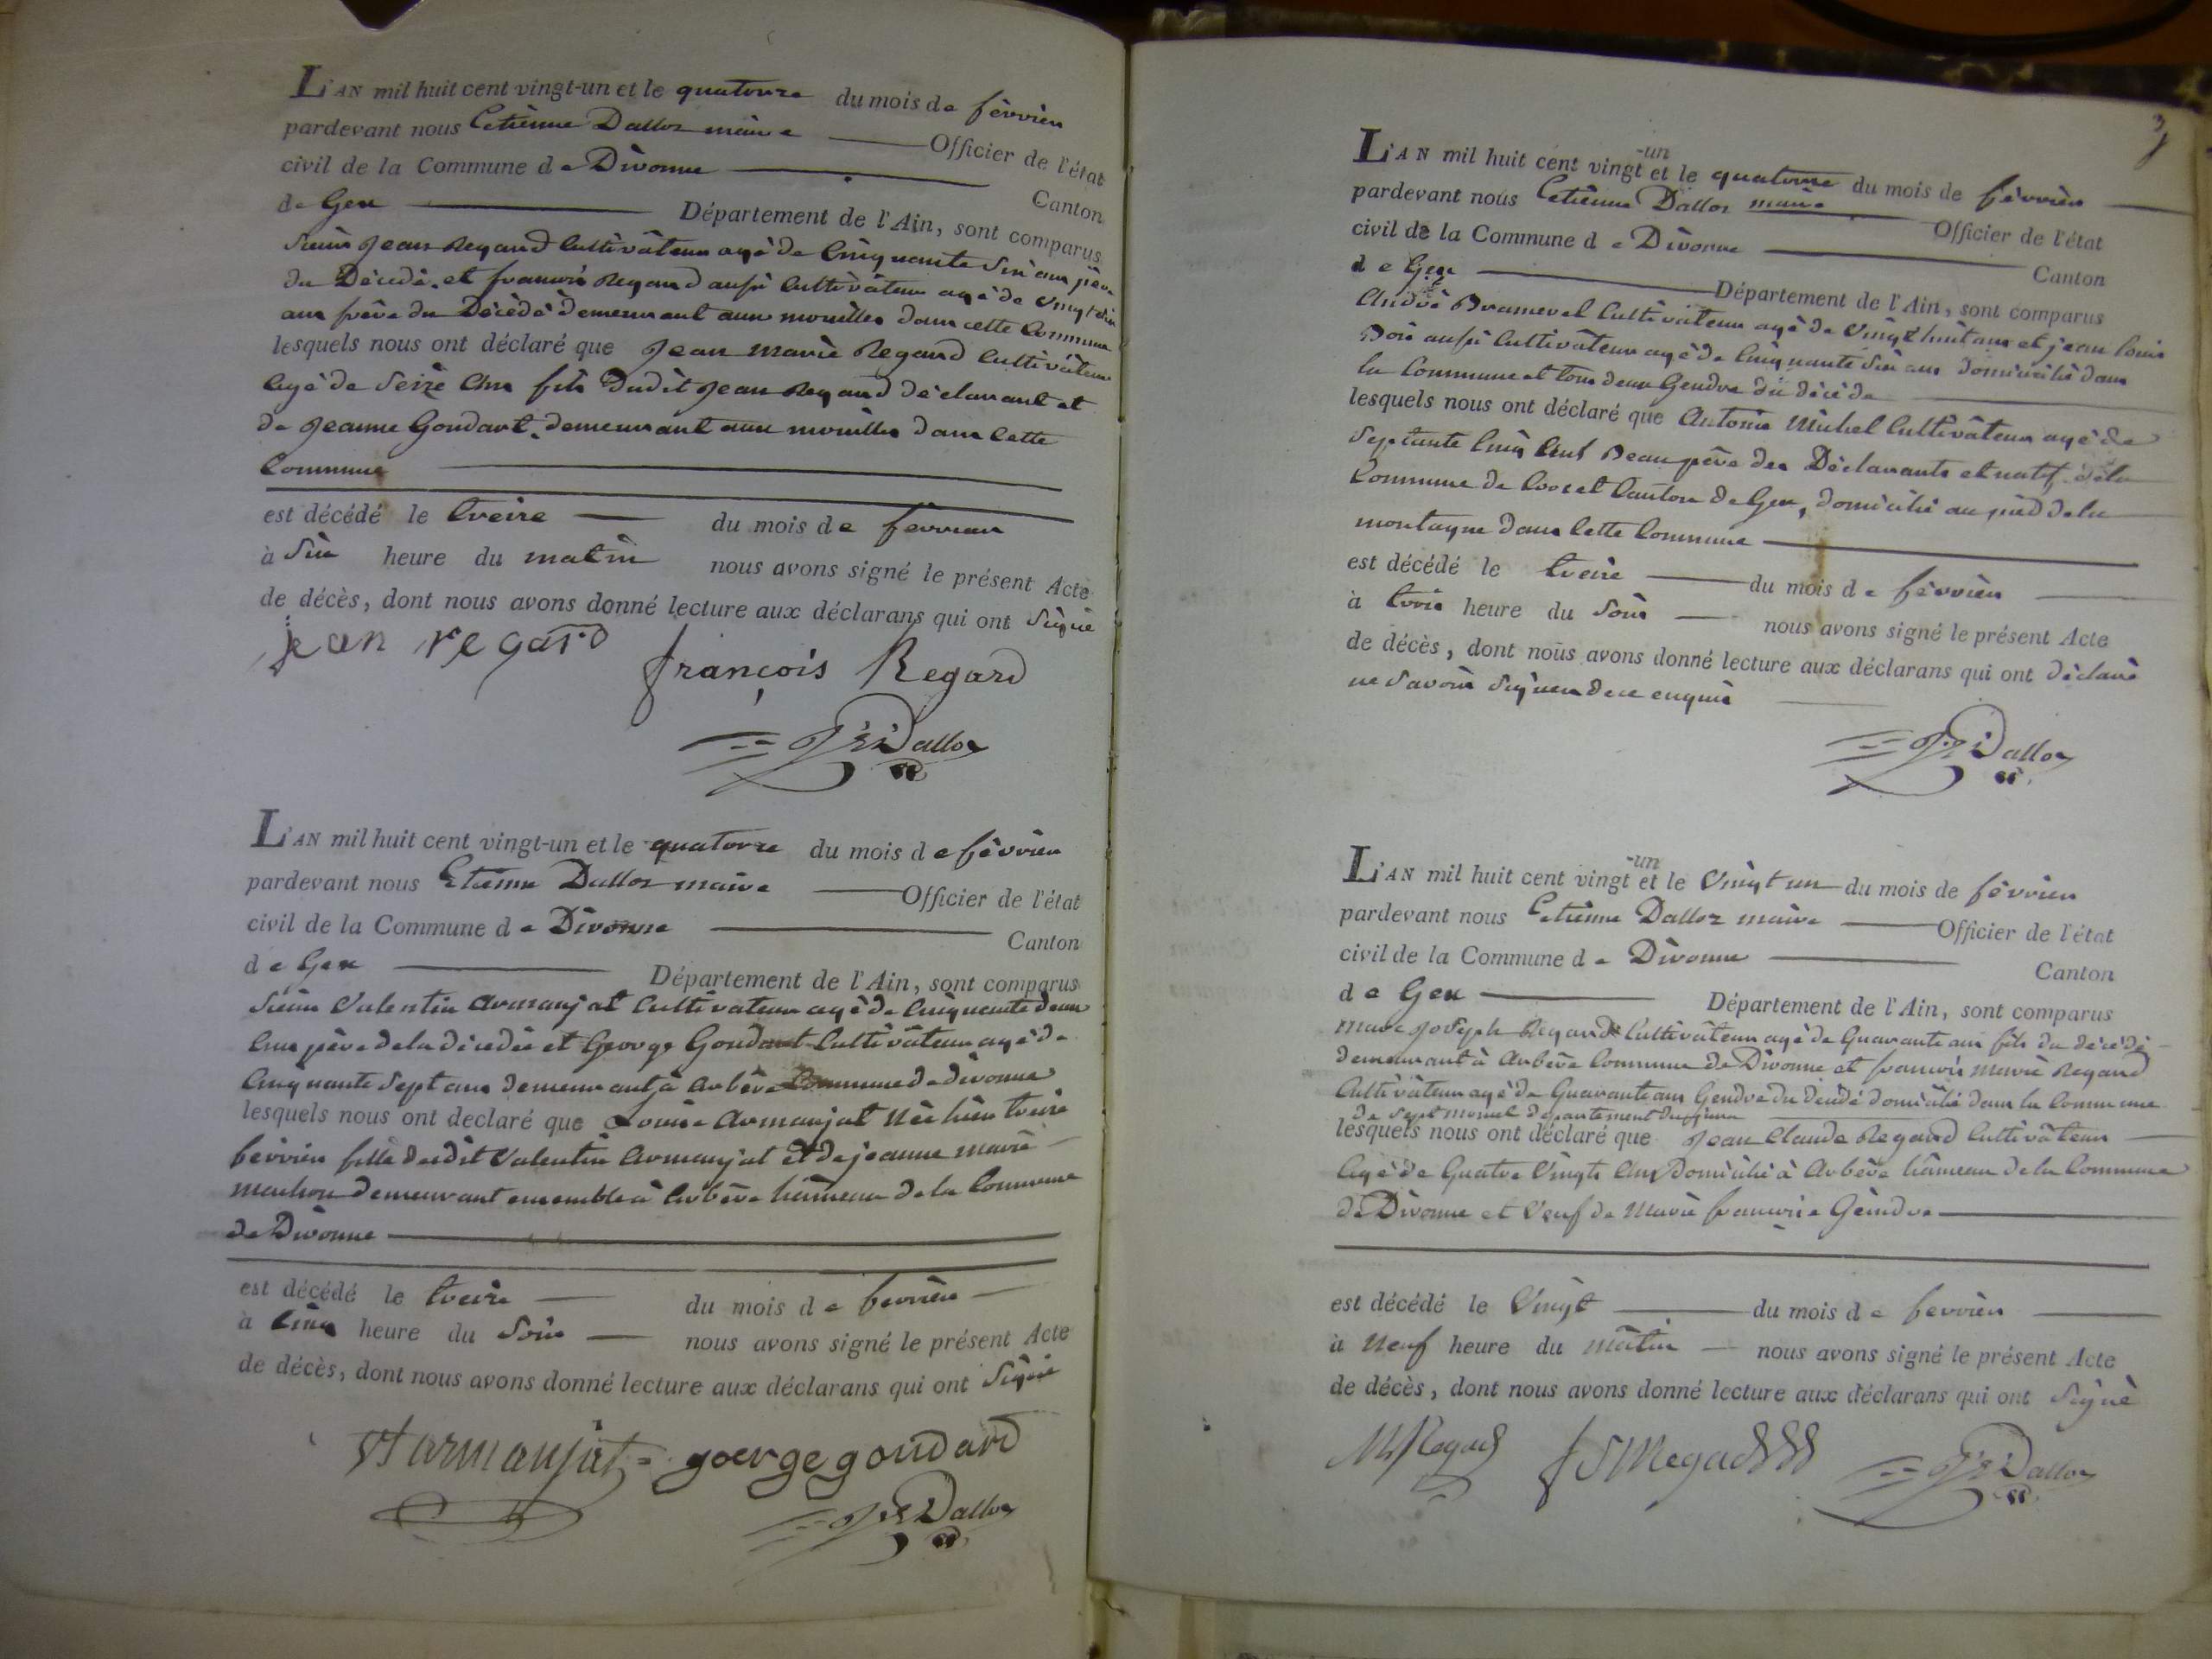 L'AN mil huit cent vingt-un et le quatorze du mois de févrièr
pardevant nous Etiènne Dalloz maire Officier de l'état
civil de la Commune de Divonne Canton
de Gex Département de l'Ain, sont comparus
Sieur Jean Regard Cultivâteur agé de Cinquante Six ans père
du Décédé et françois Regard aussi Cultivâteur agé de vingt
ans frère du Décédé demeurant aux mouilles dans cette Commune
lesquels nous ont déclaré que Jean Marie Regard Cultivâteur
agé de Seize Ans fils dudit Jean Regard déclarant et
de Jeanne Goudart demeurant aux mouilles dans cette
Commune
est décédé le treize du mois de fevrier
à Six heure du matin nous avons signé le présent Acte
de décès, dont nous avons donné lecture aux déclarans qui ont Signé
jean regard
françois Regard
Dalloz
L'AN mil huit cent vingt-un et le quatorze du mois de févrièr
pardevant nous Etiènne Dalloz maire Officier de l'état
civil de la Commune de Divonne Canton
de Gex Département de l'Ain, sont comparus
Sieur Valentin Armanjat Cultivateur agé de Cinquante deux
ans père de la décédée et George Goudart Cultivâteur agé de
Cinquante Sept ans demeurant à Arbère Commune de divonne
lesquels nous ont declaré que Louise Armanjat Née hier treize
fevrier fille dudit Valentin Armanjat et de jeanne marie
demeurant ensemble à Arbère hâmeau de la Commune
de Divonne
est décédé le treize du mois de fevrièr
à Cinq heure du Soir nous avons signé le présent Acte
de décès, dont nous avons donné lecture aux déclarans qui ont Signé
Vt armanjat goerge goudard
Dalloz
3
L'AN mil huit cent vingt-un et le quatorze du mois de févrièr
pardevant nous Etiènne Dalloz maire Officier de l'état
civil de la Commune de Divonne Canton
de Gex Département de l'Ain, sont comparus
André Pramerel Cultivâteur agé de vingt huit ans et jean louis
Bois aussi Cultivâteur agé de Cinquante Six ans domicilié dans
la Commune et tous deux Gendre du décédé
lesquels nous ont déclaré que Antoine Michel Cultivâteur agé de
Septante Cinq Ans Beau père des Déclarants et natif de la
Commune de Crozet Canton de Gex, domicilié au pied de la
montagne dans Cette Commune
est décédé le treize du mois de févrièr
à trois heure du Soir nous avons signé le présent Acte
de décès, dont nous avons donné lecture aux déclarans qui ont déclaré
ne Savoir Signer de ce enquis
Dalloz
L'AN mil huit cent vingt-un et le vingt un du mois de févrièr
pardevant nous Etiènne Dalloz maire Officier de l'état
civil de la Commune de Divonne Canton
de Gex Département de l'Ain, sont comparus
Marc Joseph Regard Cultivâteur agé de Quarante ans fils du décédé
demeurant à Arbère Commune de Divonne et françois Marie Regard
Cultivâteur agé de Quarante ans Gendre du décédé domicilié dans la Commune
de Septmoncel département du jura
lesquels nous ont déclaré que Jean Claude Regard Cultivâteur
Agé de Quatre Vingts Ans Domicilié à Arbère hâmeau de la Commune
de Divonne et Veuf de Marie françoise Geindre
est décédé le Vingt du mois de fevrièr
à Neuf heure du mâtin nous avons signé le présent Acte
de décès, dont nous avons donné lecture aux déclarans qui ont Signé
Dalloz